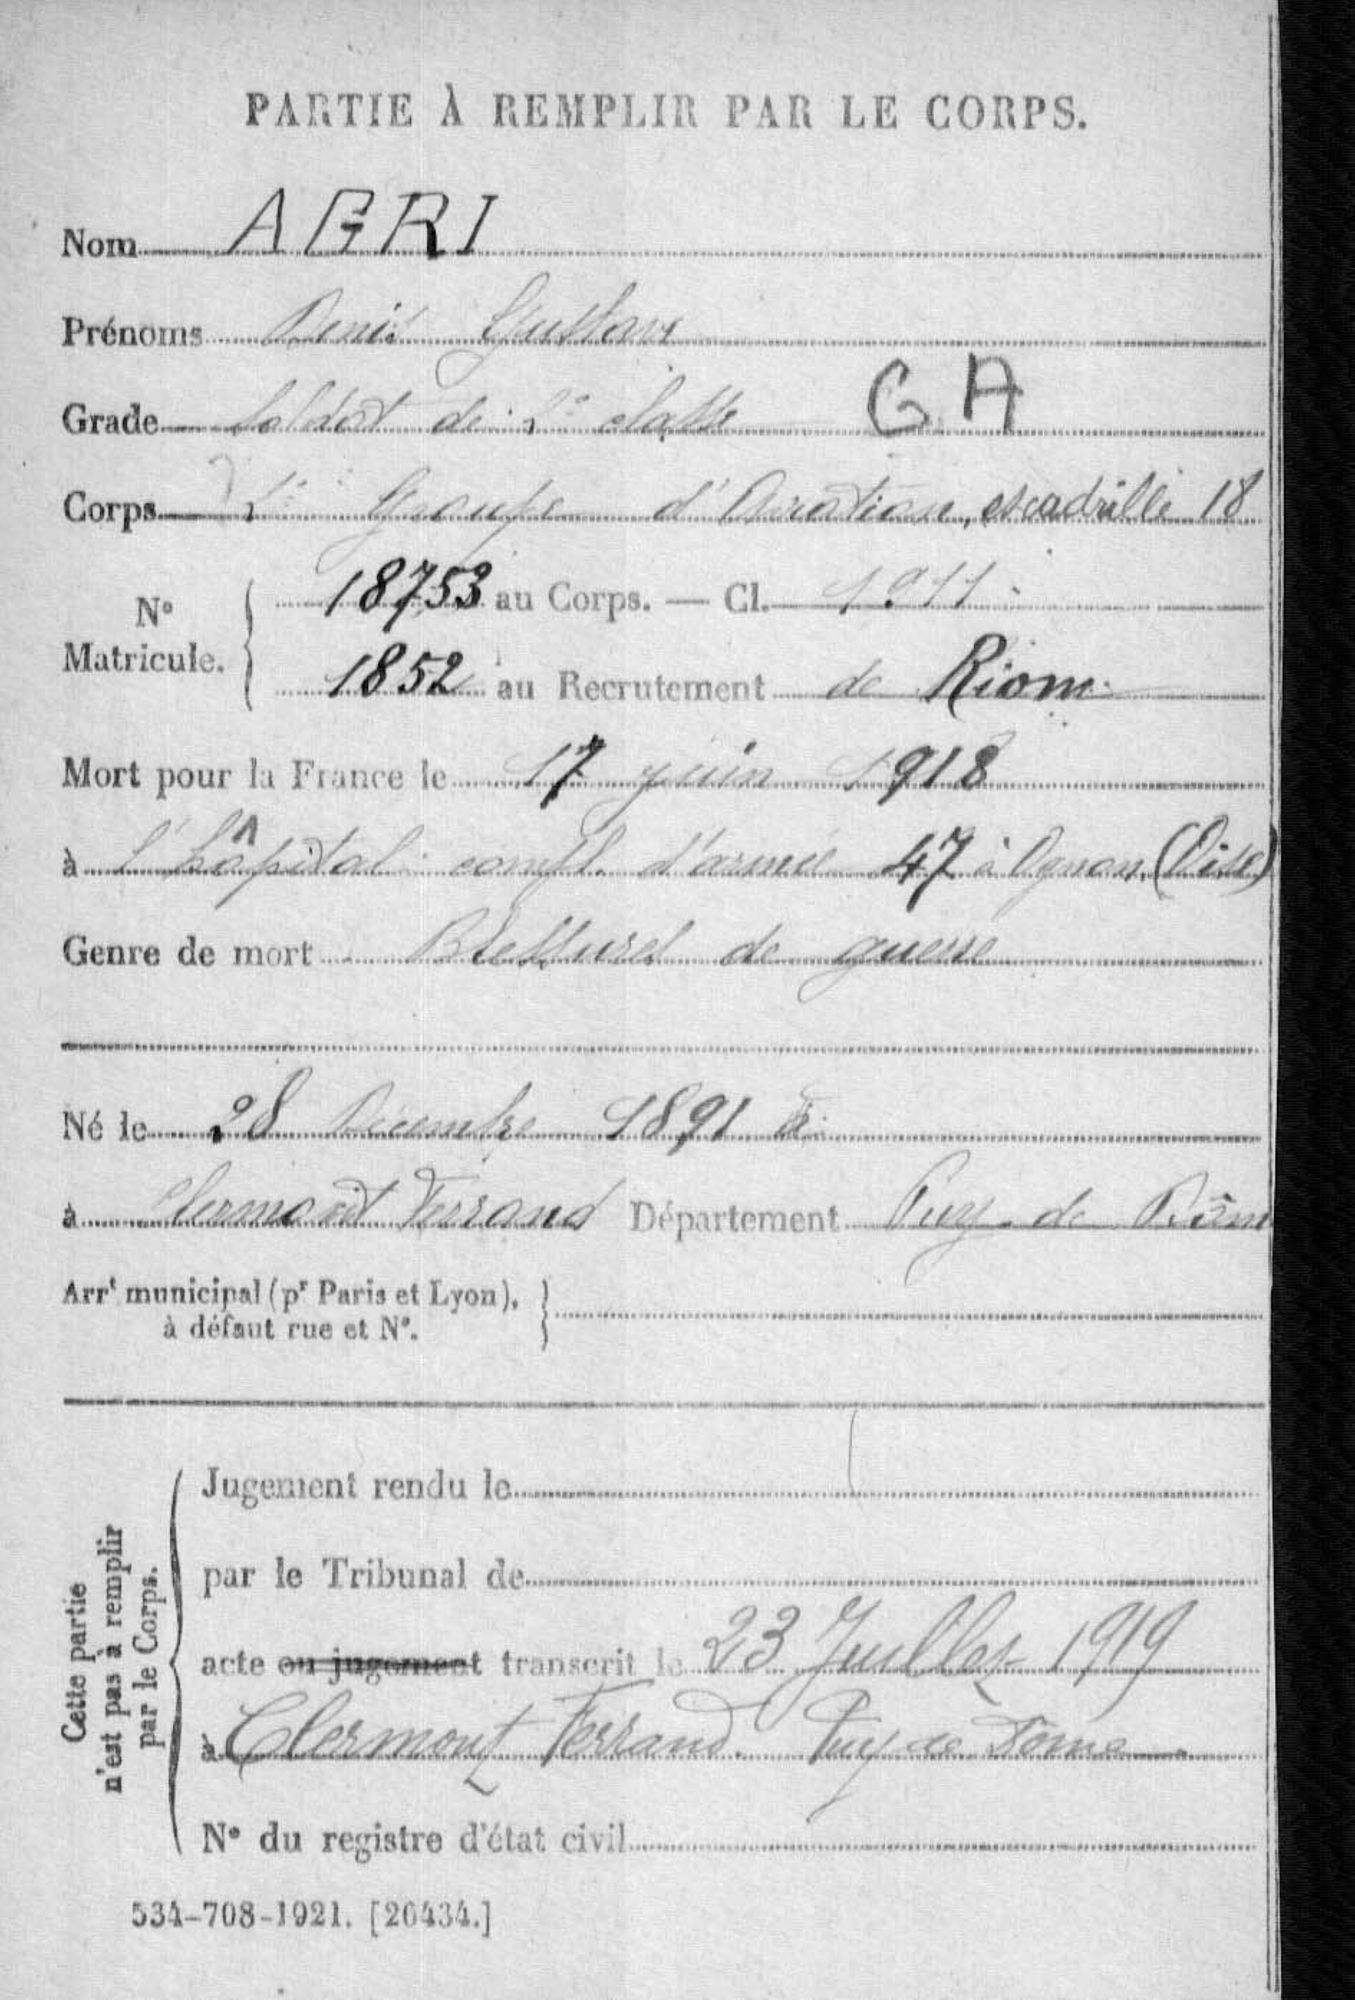 PARTIE À REMPLIR PAR LE CORPS.
Nom AGRI
Prénoms Denis Gustave
Grade Soldat de 2e classe G A
Corps 2e Groupe d'Aviation, escadrille 18
N° Matricule. 18753 au Corps. — Cl. 1911
1852 au Recrutement de Riom
Mort pour la France le 17 juin 1918
à l'hôpital compl. d'armée 47 à Ognon (Oise)
Genre de mort Blessures de guerre
Né le 28 Décembre 1891 à
à Clermont Ferrand Département Puy de Dôme
Arrt municipal (pr Paris et Lyon),
à défaut rue et N°.
Cette partie
n'est pas à remplir
par le Corps.
Jugement rendu le
par le Tribunal de
acte ou jugement transcrit le 23 Juillet 1919
à Clermont Ferrand. Puy de Dome
N° du registre d'état civil
534-708-1921. [26434.]